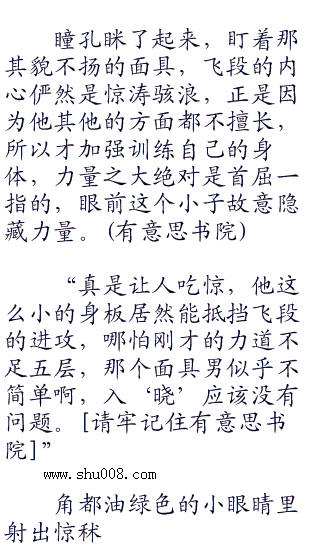 瞳孔眯了起来，盯着那
其貌不扬的面具，飞段的内
心俨然是惊涛骇浪，正是因
为他其他的方面都不擅长，
所以才加强训练自己的身
体，力量之大绝对是首屈一
指的，眼前这个小子故意隐
藏力量。(有意思书院)
“真是让人吃惊，他这
么小的身板居然能抵挡飞段
的进攻，哪怕刚才的力道不
足五层，那个面具男似乎不
简单啊，入‘晓’应该没有
问题。[请牢记住有意思书
院]”
www.shu008.com
角都油绿色的小眼睛里
射出惊秫